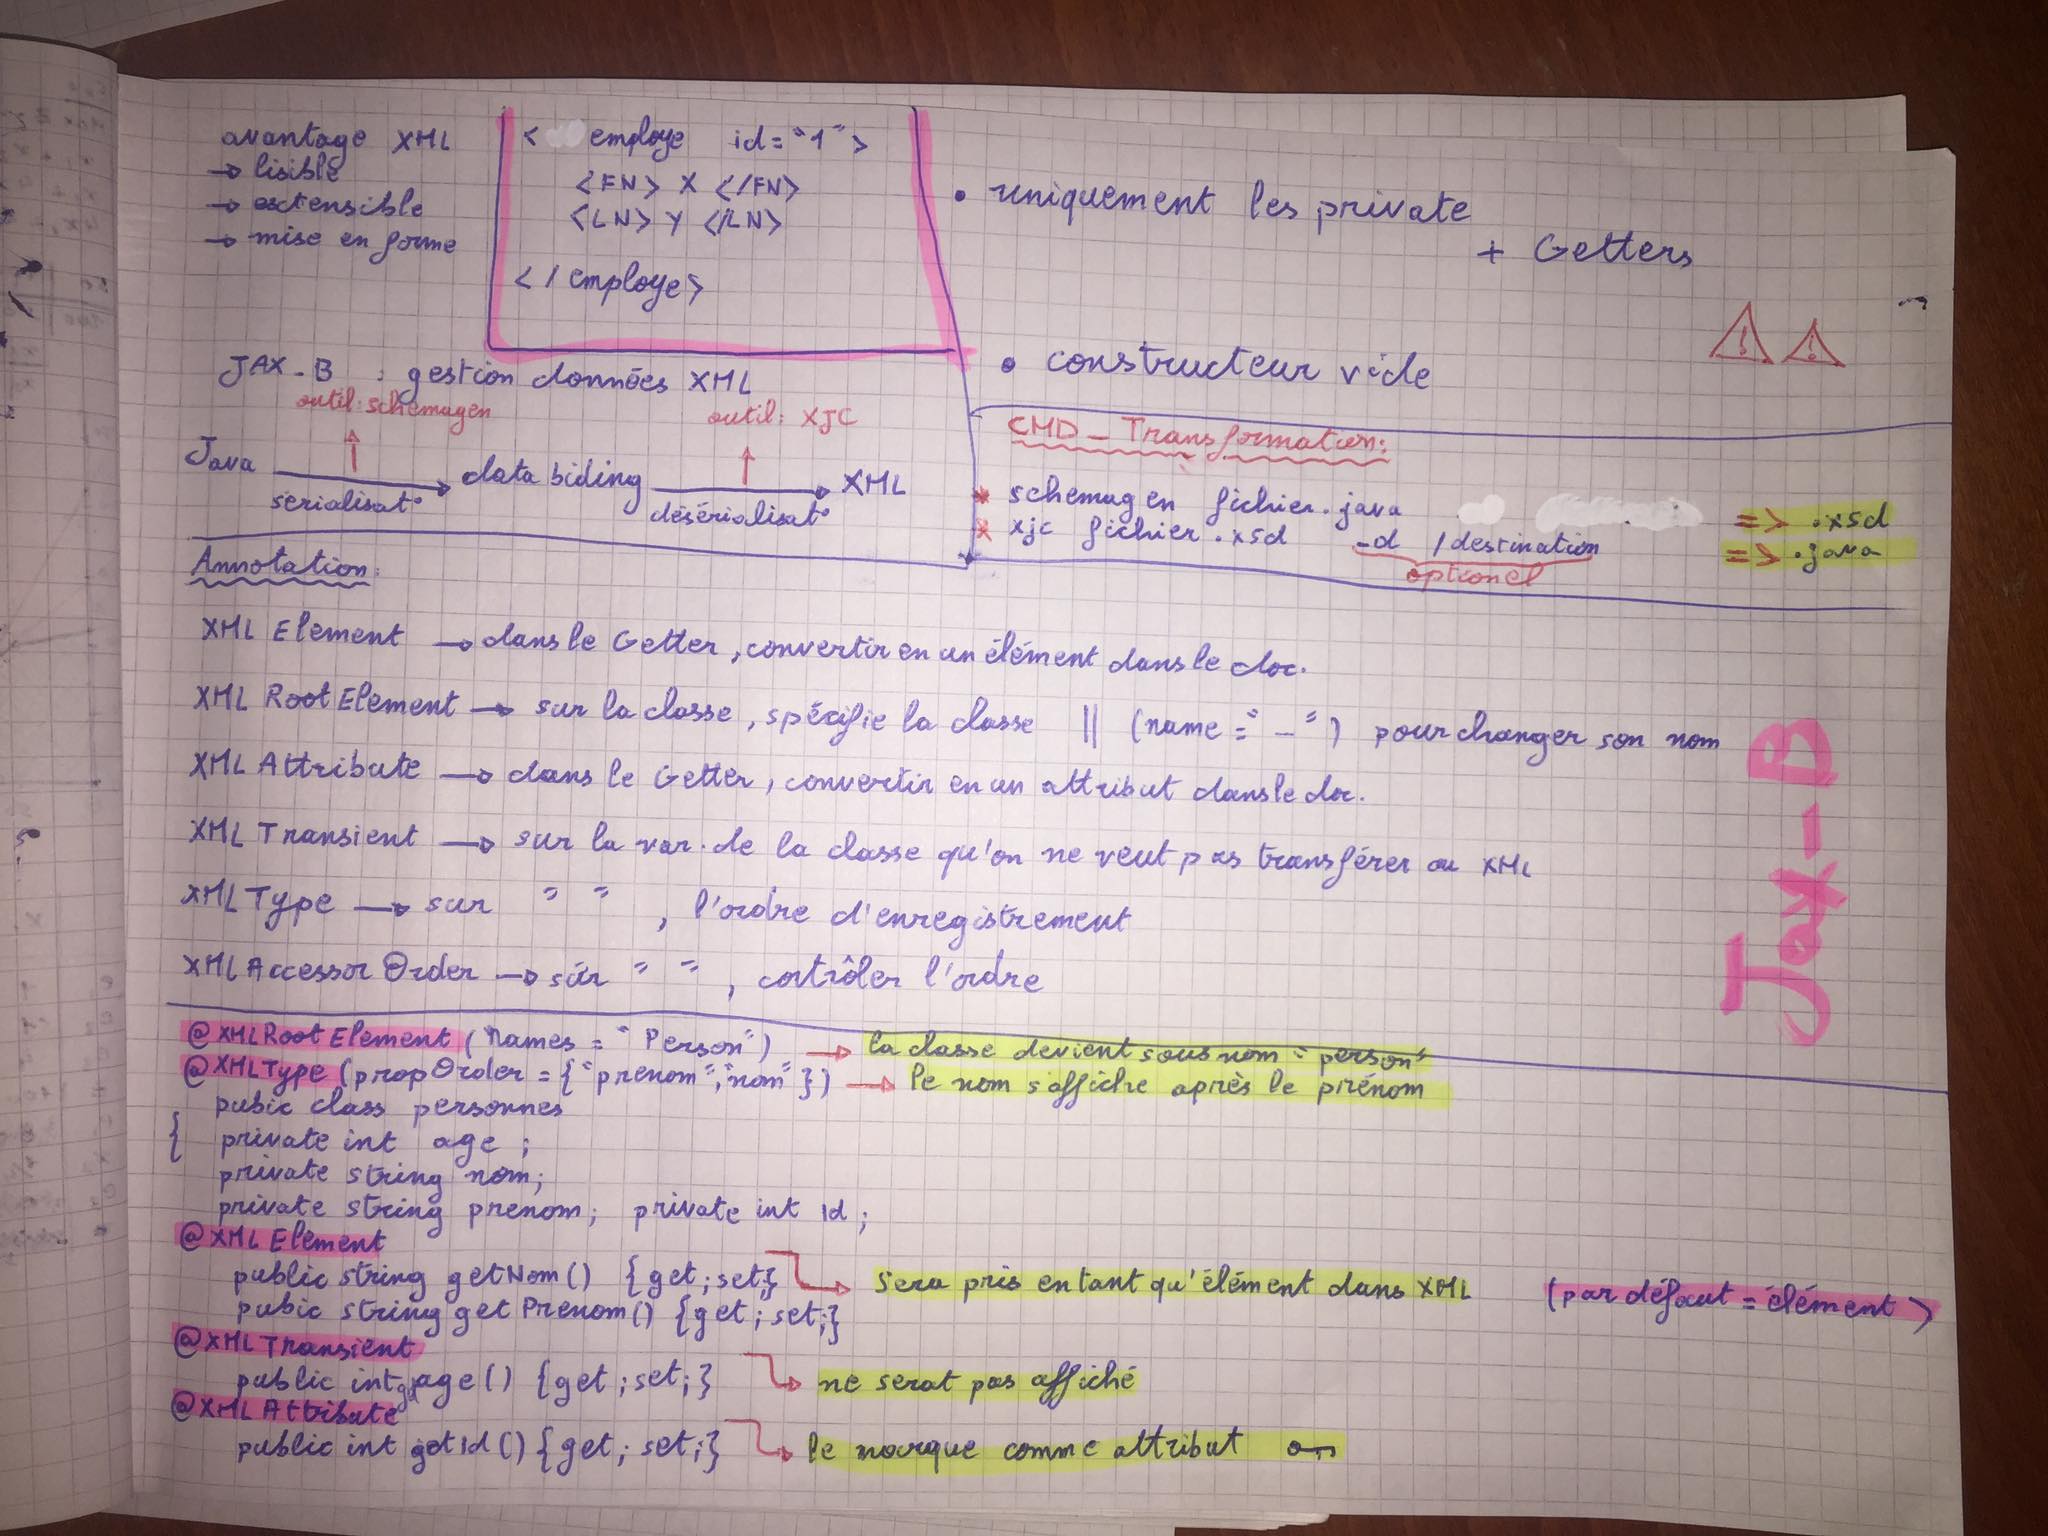 avantage XML
→ lisible
→ extensible
→ mise en forme
< employe id="1" >
<FN> X </FN>
<LN> Y </LN>
</employe>
• uniquement les private
+ Getters
• constructeur vide
JAX-B : gestion données XML
outil: schemagen
outil: XJC
Java → data biding → XML
serialisat°
désérialisat°
CMD_Transformation:
* schemagen fichier.java => .xsd
* xjc fichier.xsd -d /destination => .java
optionel
Annotation:
XML Element → dans le Getter, convertir en un élément dans le doc.
XML RootElement → sur la classe, spécifie la classe || (name = "_") pour changer son nom
XML Attribute → dans le Getter, convertir en un attribut dans le doc.
XML Transient → sur la var. de la classe qu'on ne veut pas transférer au XML
XML Type → sur " ", l'ordre d'enregistrement
XML Accessor Order → sur " ", contrôler l'ordre
Jax-B
@XMLRootElement ("names = "Person") → la classe devient sous nom "person"
@XMLType (propOrder = {"prenom","nom"}) → le nom s'affiche après le prénom
pubic class personnes
{ private int age ;
private string nom;
private string prenom; private int Id ;
@XML Element
public string getNom() {get;set;} → Sera pris en tant qu'élément dans XML (par défaut = élément)
pubic string getPrenom() {get;set;}
@XML Transient
public int getage() {get;set;} → ne serat pas affiché
@XML Attribute
public int getId() {get;set;} → le marque comme attribut